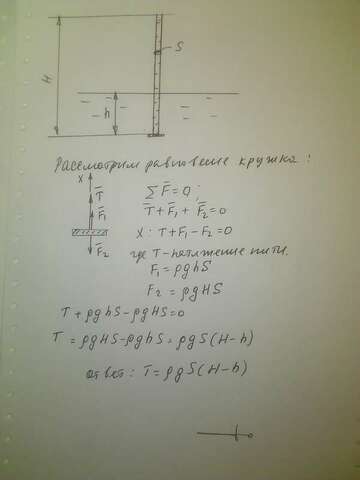 H
S
h
Рассмотрим равновесие кружка:
X
T̅
F̅₁
F̅₂
∑F̅ = 0;
T̅ + F̅₁ + F̅₂ = 0
x: T + F₁ - F₂ = 0
где T - натяжение нити.
F₁ = ρghS
F₂ = ρgHS
T + ρghS - ρgHS = 0
T = ρgHS - ρghS = ρgS(H - h)
ответ: T = ρgS(H - h)